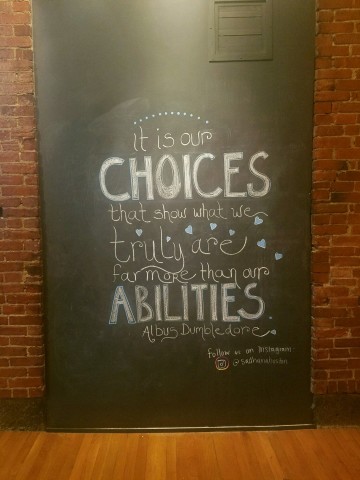 it is our
CHOICES
that show what we
truly are
far more than our
ABILITIES.
Albus Dumbledore
Follow us on Instagram: